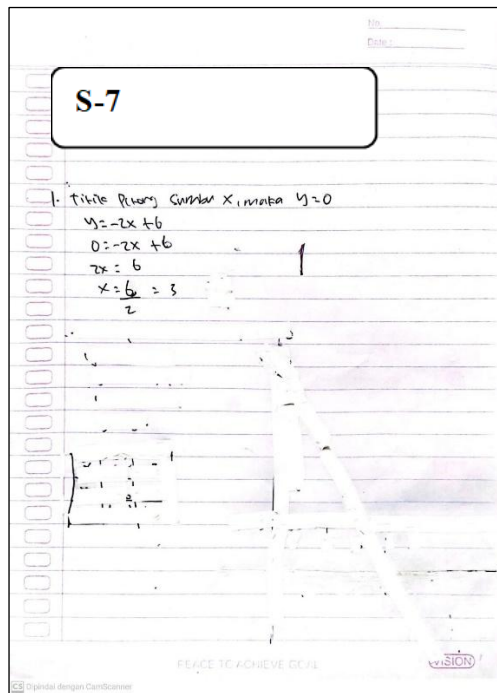 No.
Date :
S-7
1. Titik Potong Sumbu X, maka y=0
y=-2x +6
0=-2x +6
2x = 6
x = 6/2 = 3
1
PEACE TO ACHIEVE GOAL
VISION
CS Dipindai dengan CamScanner